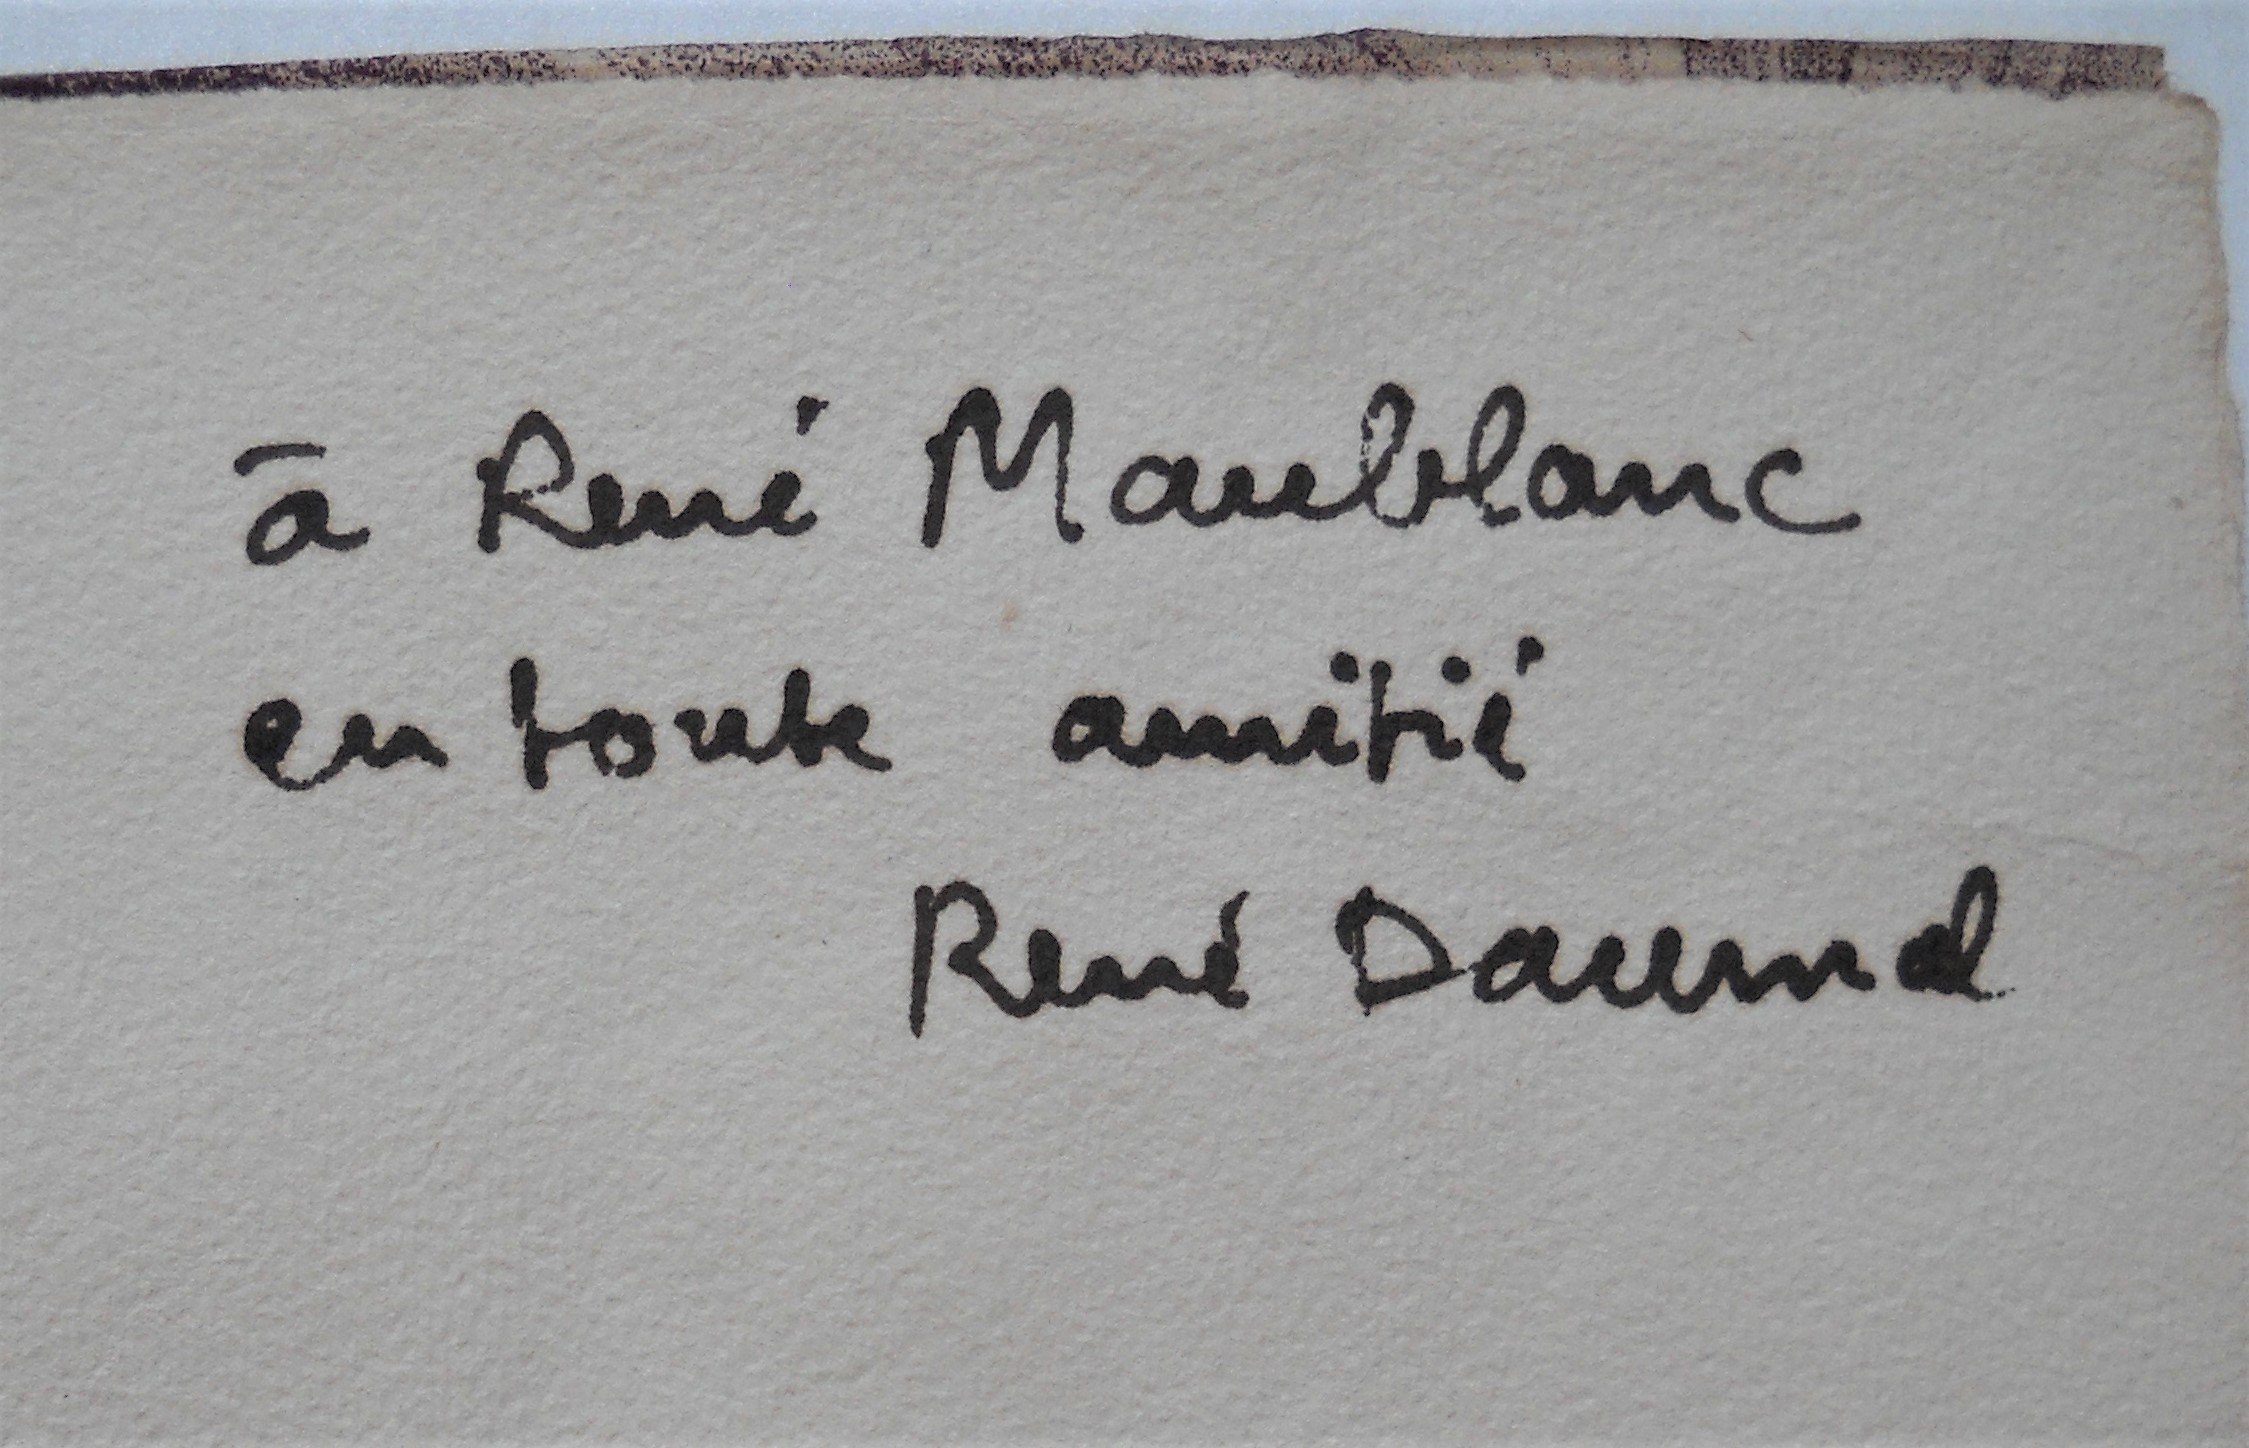 à René Maublanc
en toute amitié
René Daumal